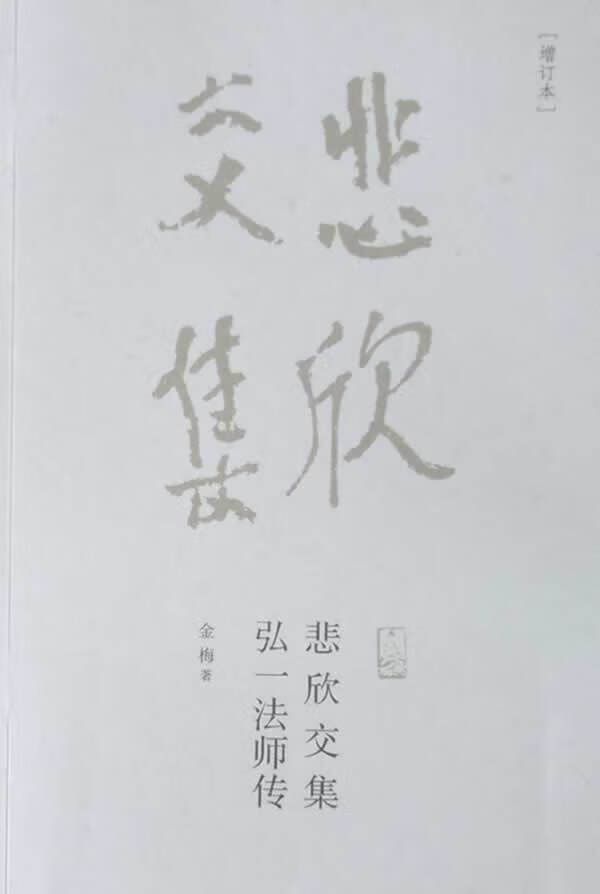 [增订本]
悲欣
交集
悲欣交集
弘一法师传
金梅著